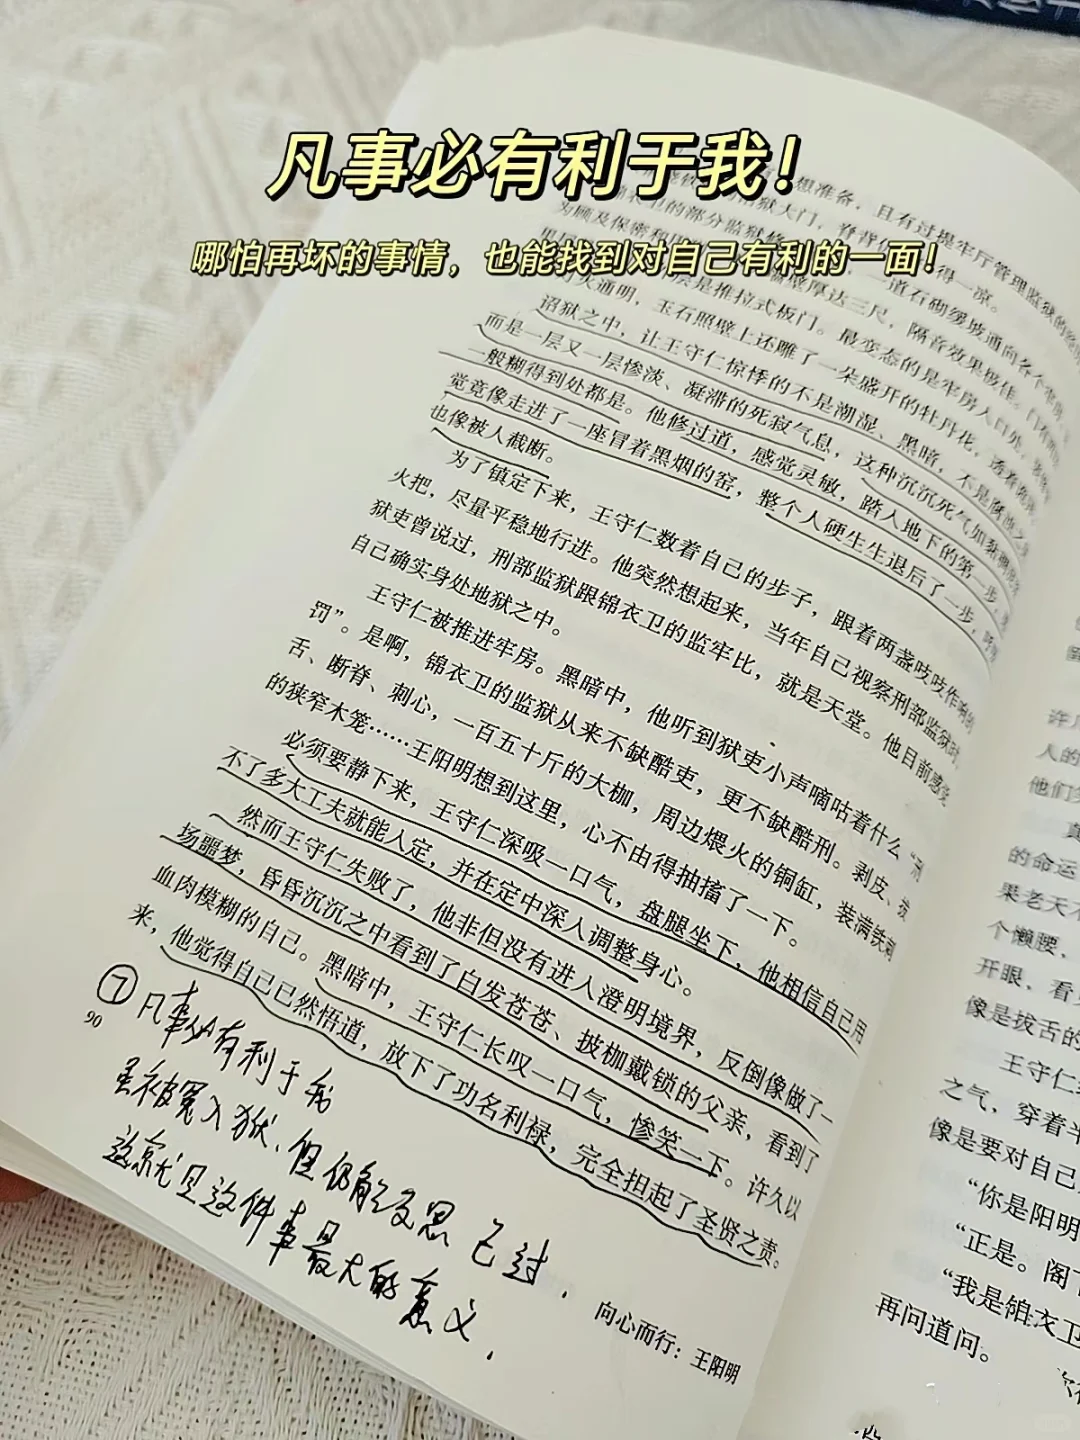 凡事必有利于我！
哪怕再坏的事情，也能找到对自己有利的一面！
想准备，且有过提牢厅管理监狱的经
狱大门，脊背
得一凉。
卫的部分监狱修
一道石砌缓坡通向各个牢房，
为顾及保密和
墙壁厚达三尺，隔音效果极佳。门有两
层是推拉式板门。最变态的是牢房入口处，
灯火通明，玉石照壁上还雕了一朵盛开的牡丹花，透着
诏狱之中，让王守仁惊悸的不是潮湿、黑暗，不是腐蚀之
而是一层又一层惨淡、凝滞的死寂气息，这种沉沉死气如黏稠
一般糊得到处都是。他修过道，感觉灵敏，踏入地下的第一步，
觉竟像走进了一座冒着黑烟的窑，整个人硬生生退后了一步，呼吸
也像被人截断。
为了镇定下来，王守仁数着自己的步子，跟着两盏吱吱作响的
火把，尽量平稳地行进。他突然想起来，当年自己视察刑部监狱时，
狱吏曾说过，刑部监狱跟锦衣卫的监牢比，就是天堂。他目前感觉
自己确实身处地狱之中。
王守仁被推进牢房。黑暗中，他听到狱吏小声嘀咕着什么“刑
罚”。是啊，锦衣卫的监狱从来不缺酷吏，更不缺酷刑。剥皮、拔
舌、断脊、刺心，一百五十斤的大枷，周边煨火的铜缸，装满铁刺
的狭窄木笼……王阳明想到这里，心不由得抽搐了一下。
必须要静下来，王守仁深吸一口气，盘腿坐下，他相信自己用
不了多大工夫就能入定，并在定中深入调整身心。
然而王守仁失败了，他非但没有进入澄明境界，反倒像做了一
场噩梦，昏昏沉沉之中看到了白发苍苍、披枷戴锁的父亲，看到了
血肉模糊的自己。黑暗中，王守仁长叹一口气，惨笑一下。许久以
来，他觉得自己已然悟道，放下了功名利禄，完全担起了圣贤之责。
90
⑦凡事必有利于我
虽被冤入狱、但仍能反思己过，
这就是这件事最大的意义．
向心而行：王阳明
许
人的
他们
真
的命运
果老天不
个懒腰，
开眼，看
像是拔舌的
王守仁
之气，穿着半
像是要对自己
“你是阳明
“正是。阁下
“我是锦衣卫
再问道问。